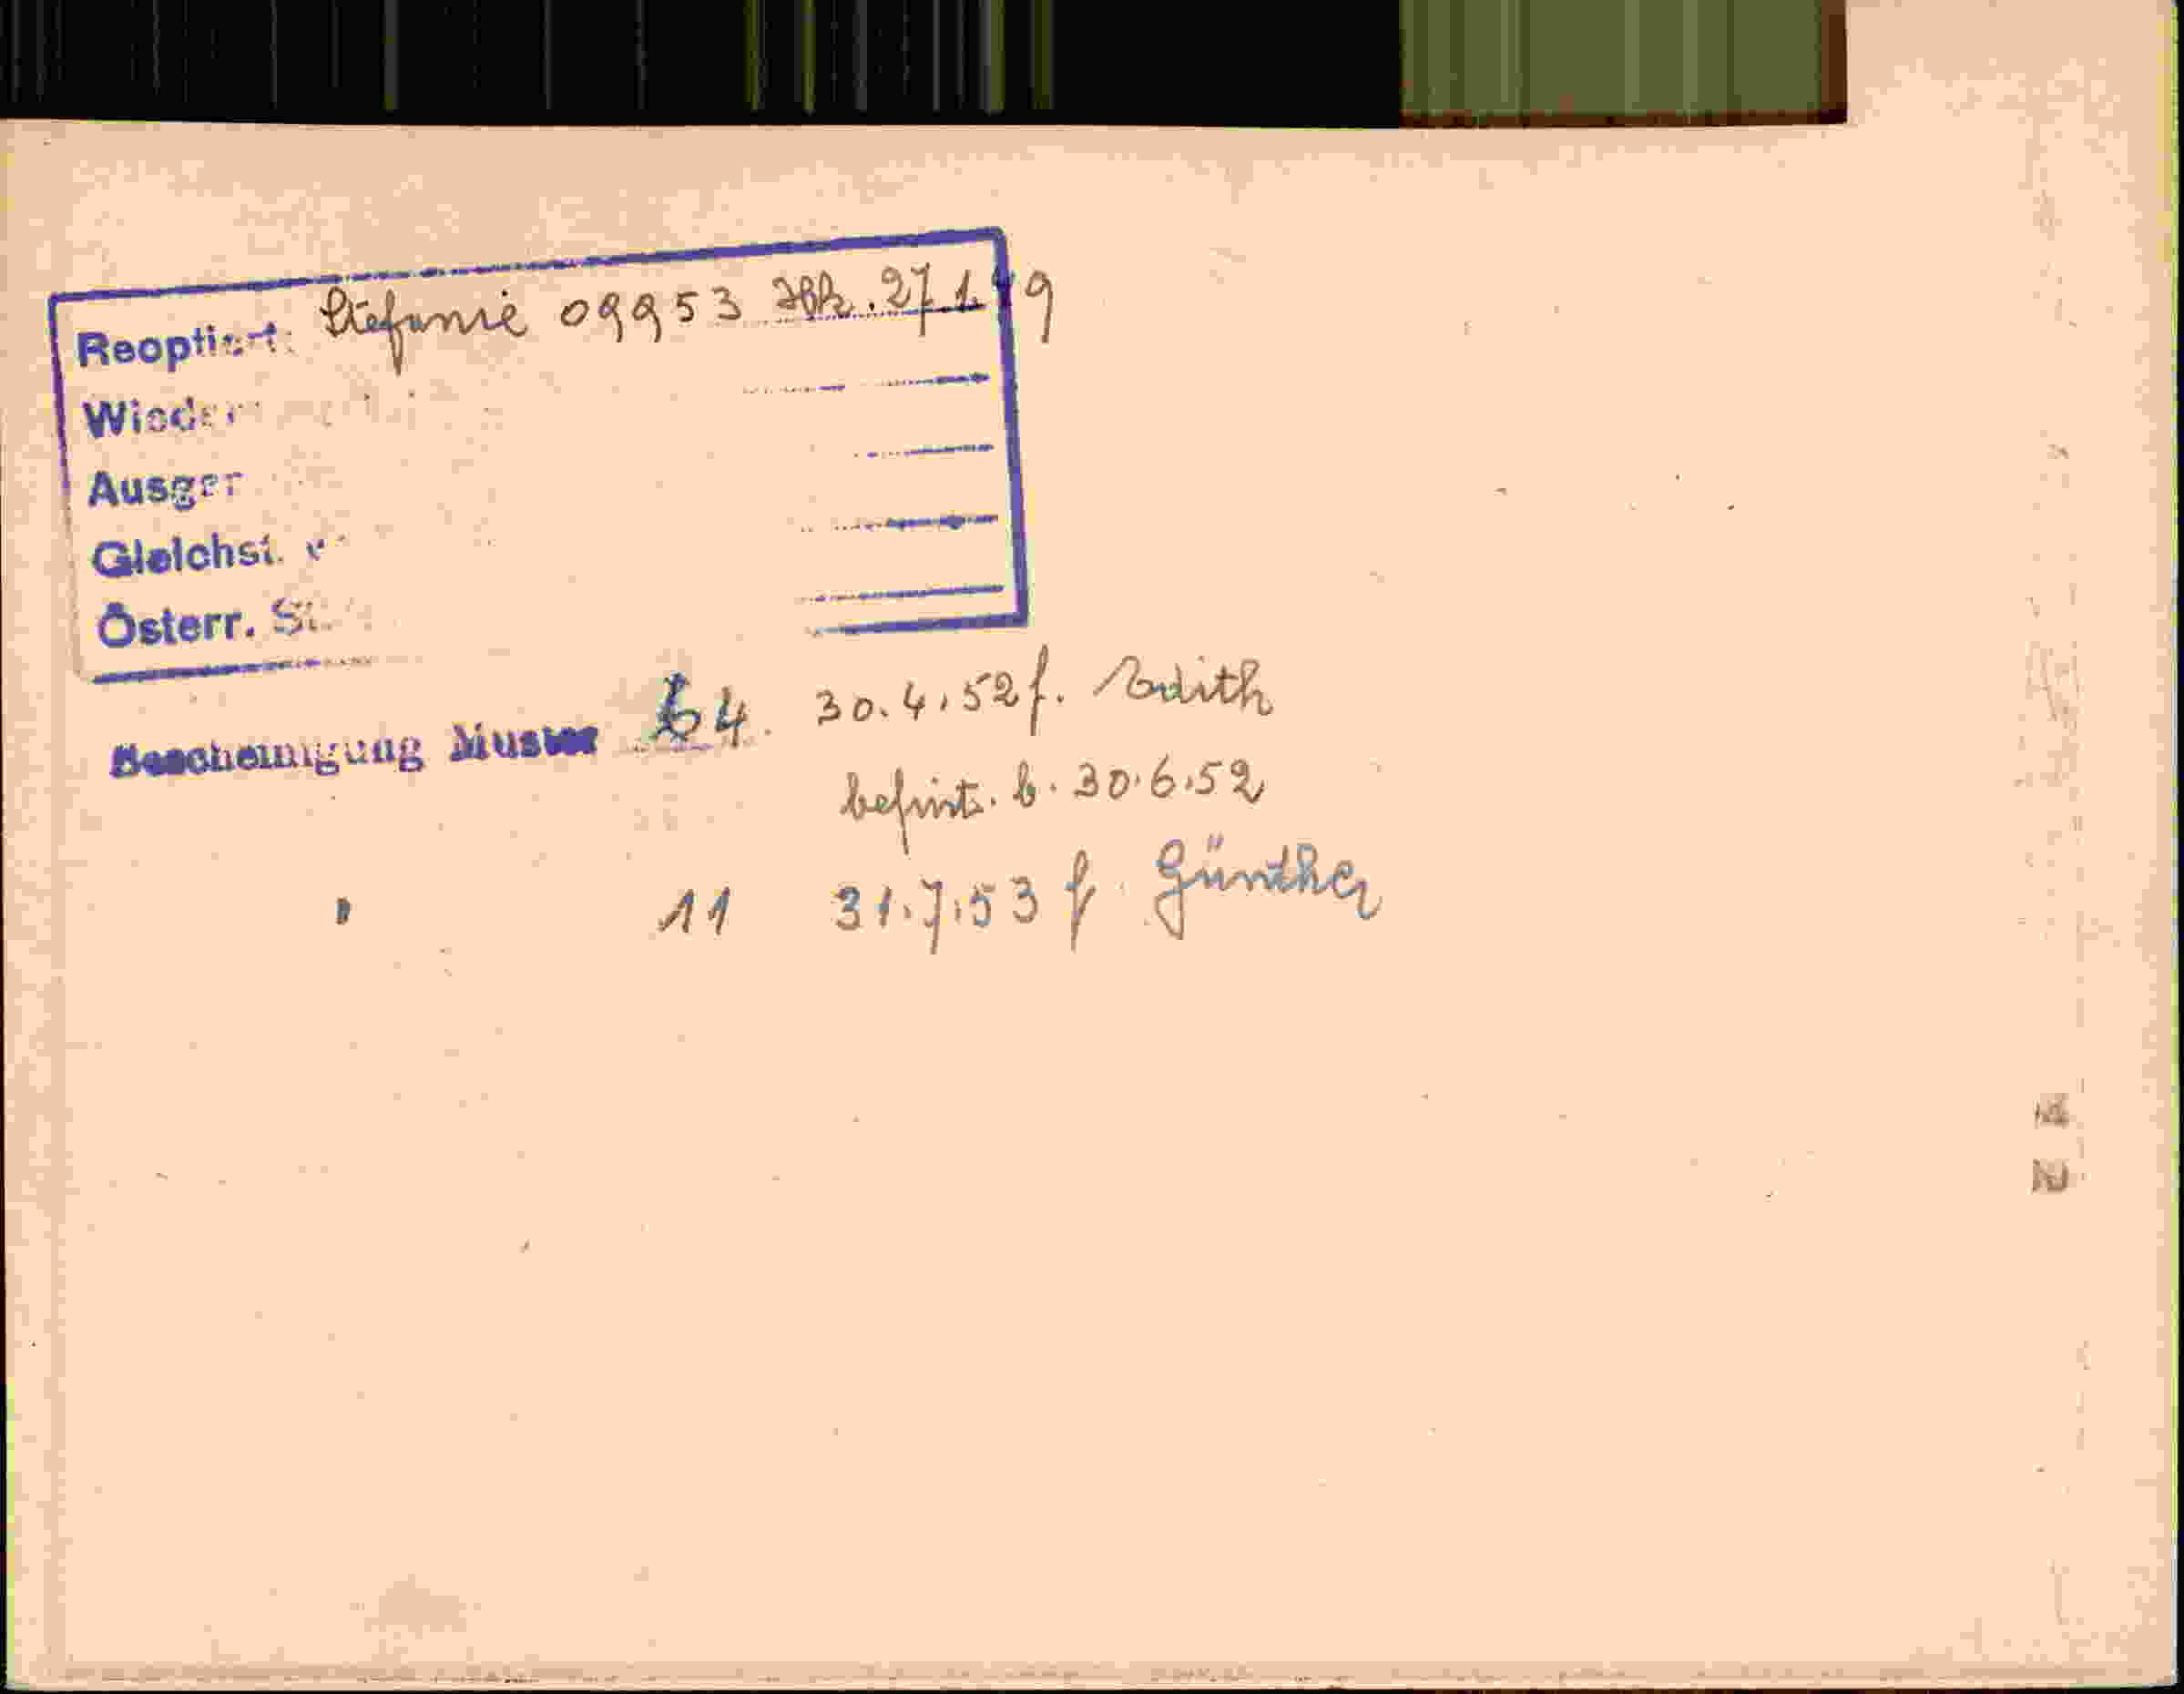 Reoptiert: Stefanie 09953 Ibk. 27.1.49
Wieder
Ausger
Gleichst. v
Österr. St.
Bescheinigung Muster 64. 30.4.52 f. Edith
befrist. b. 30.6.52
" 11 31.7.53 f. Günther